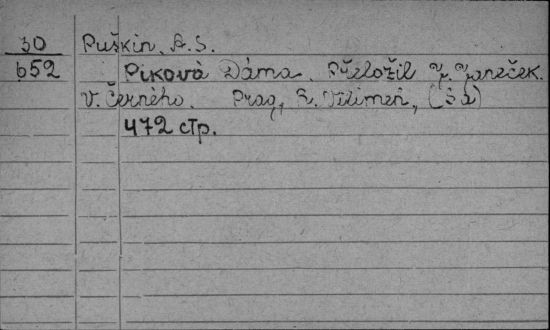 30 Puškin, A.S.
652 Piková Dáma. Přeložil J. Janeček.
V. Černého. Prag, E. Vilímek, (Sa)
472 стр.